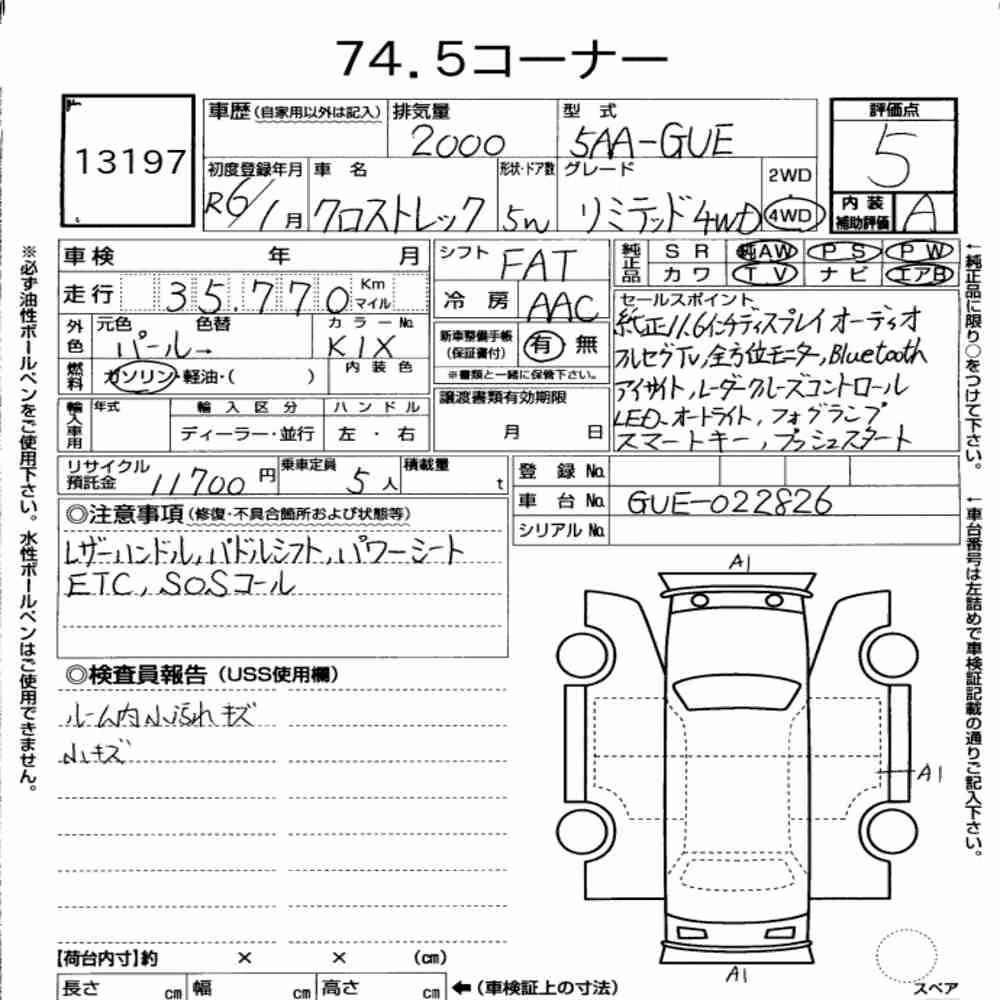 74.5コーナー
13197
車歴(自家用以外は記入) 排気量 2000 型式 5AA-GUE
評価点 5
初度登録年月 R6/1月 車名 クロストレック 形状・ドア数 5W グレード リミテッド4WD 2WD 4WD
内装補助評価 A
車検 年 月
走行 35.770 Km マイル
外色 元色 パール→ 色替 カラーNo. K1X 内装色
燃料 ガソリン・軽油・( )
輸入車用 年式 輸入区分 ディーラー・並行 ハンドル 左・右
シフト FAT
冷房 AAC
新車整備手帳(保証書付) 有 無
※書類と一緒に保管下さい。
譲渡書類有効期限
月 日
純正品 SR 純AW PS PW
カワ TV ナビ エアB
セールスポイント
純正11.6インチディスプレイオーディオ
フルセグTV,全方位モニター,Bluetooth
アイサイト,レーダークルーズコントロール
LED,オートライト,フォグランプ
スマートキー,プッシュスタート
リサイクル預託金 11700円 乗車定員 5人 積載量 t
登録No.
車台No. GUE-022826
シリアルNo.
◎注意事項(修復・不具合箇所および状態等)
レザーハンドル,パドルシフト,パワーシート
ETC,SOSコール
◎検査員報告(USS使用欄)
ルーム内小汚れキズ
小キズ
A1
A1
A1
スペア
【荷台内寸】約 × × (cm)
長さ cm 幅 cm 高さ cm ←(車検証上の寸法)
※必ず油性ボールペンをご使用下さい。水性ボールペンはご使用できません。
←純正品に限り○をつけて下さい。
←車台番号は左詰めで車検証記載の通りご記入下さい。